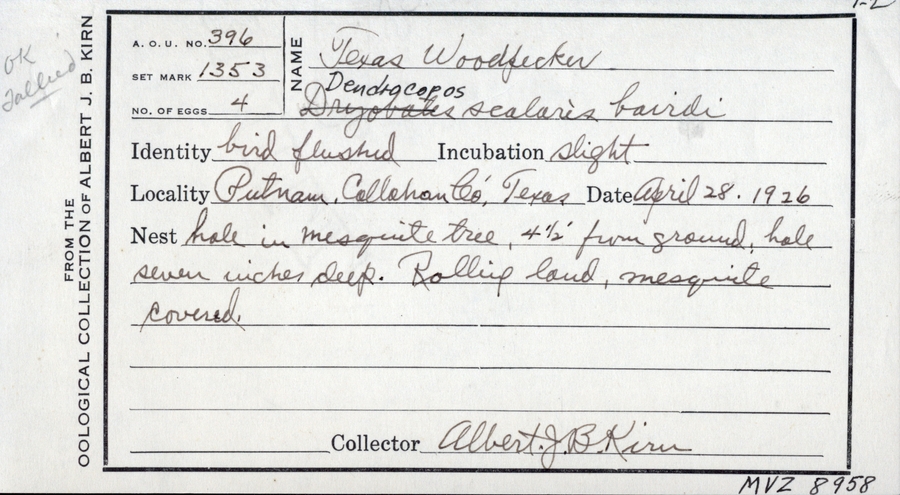 1-2
OK
Tallied
FROM THE
OOLOGICAL COLLECTION OF ALBERT J. B. KIRN
A. O. U. NO. 396
SET MARK 1353
NO. OF EGGS 4
NAME Texas Woodpecker
Dendrocopos
Dryobates scalaris bairdi
Identity bird flushed Incubation slight
Locality Putnam, Callahan Co., Texas Date April 28. 1926
Nest hole in mesquite tree, 4½' from ground, hole
seven inches deep. Rolling land, mesquite
covered.
Collector Albert J. B. Kirn
MVZ 8958